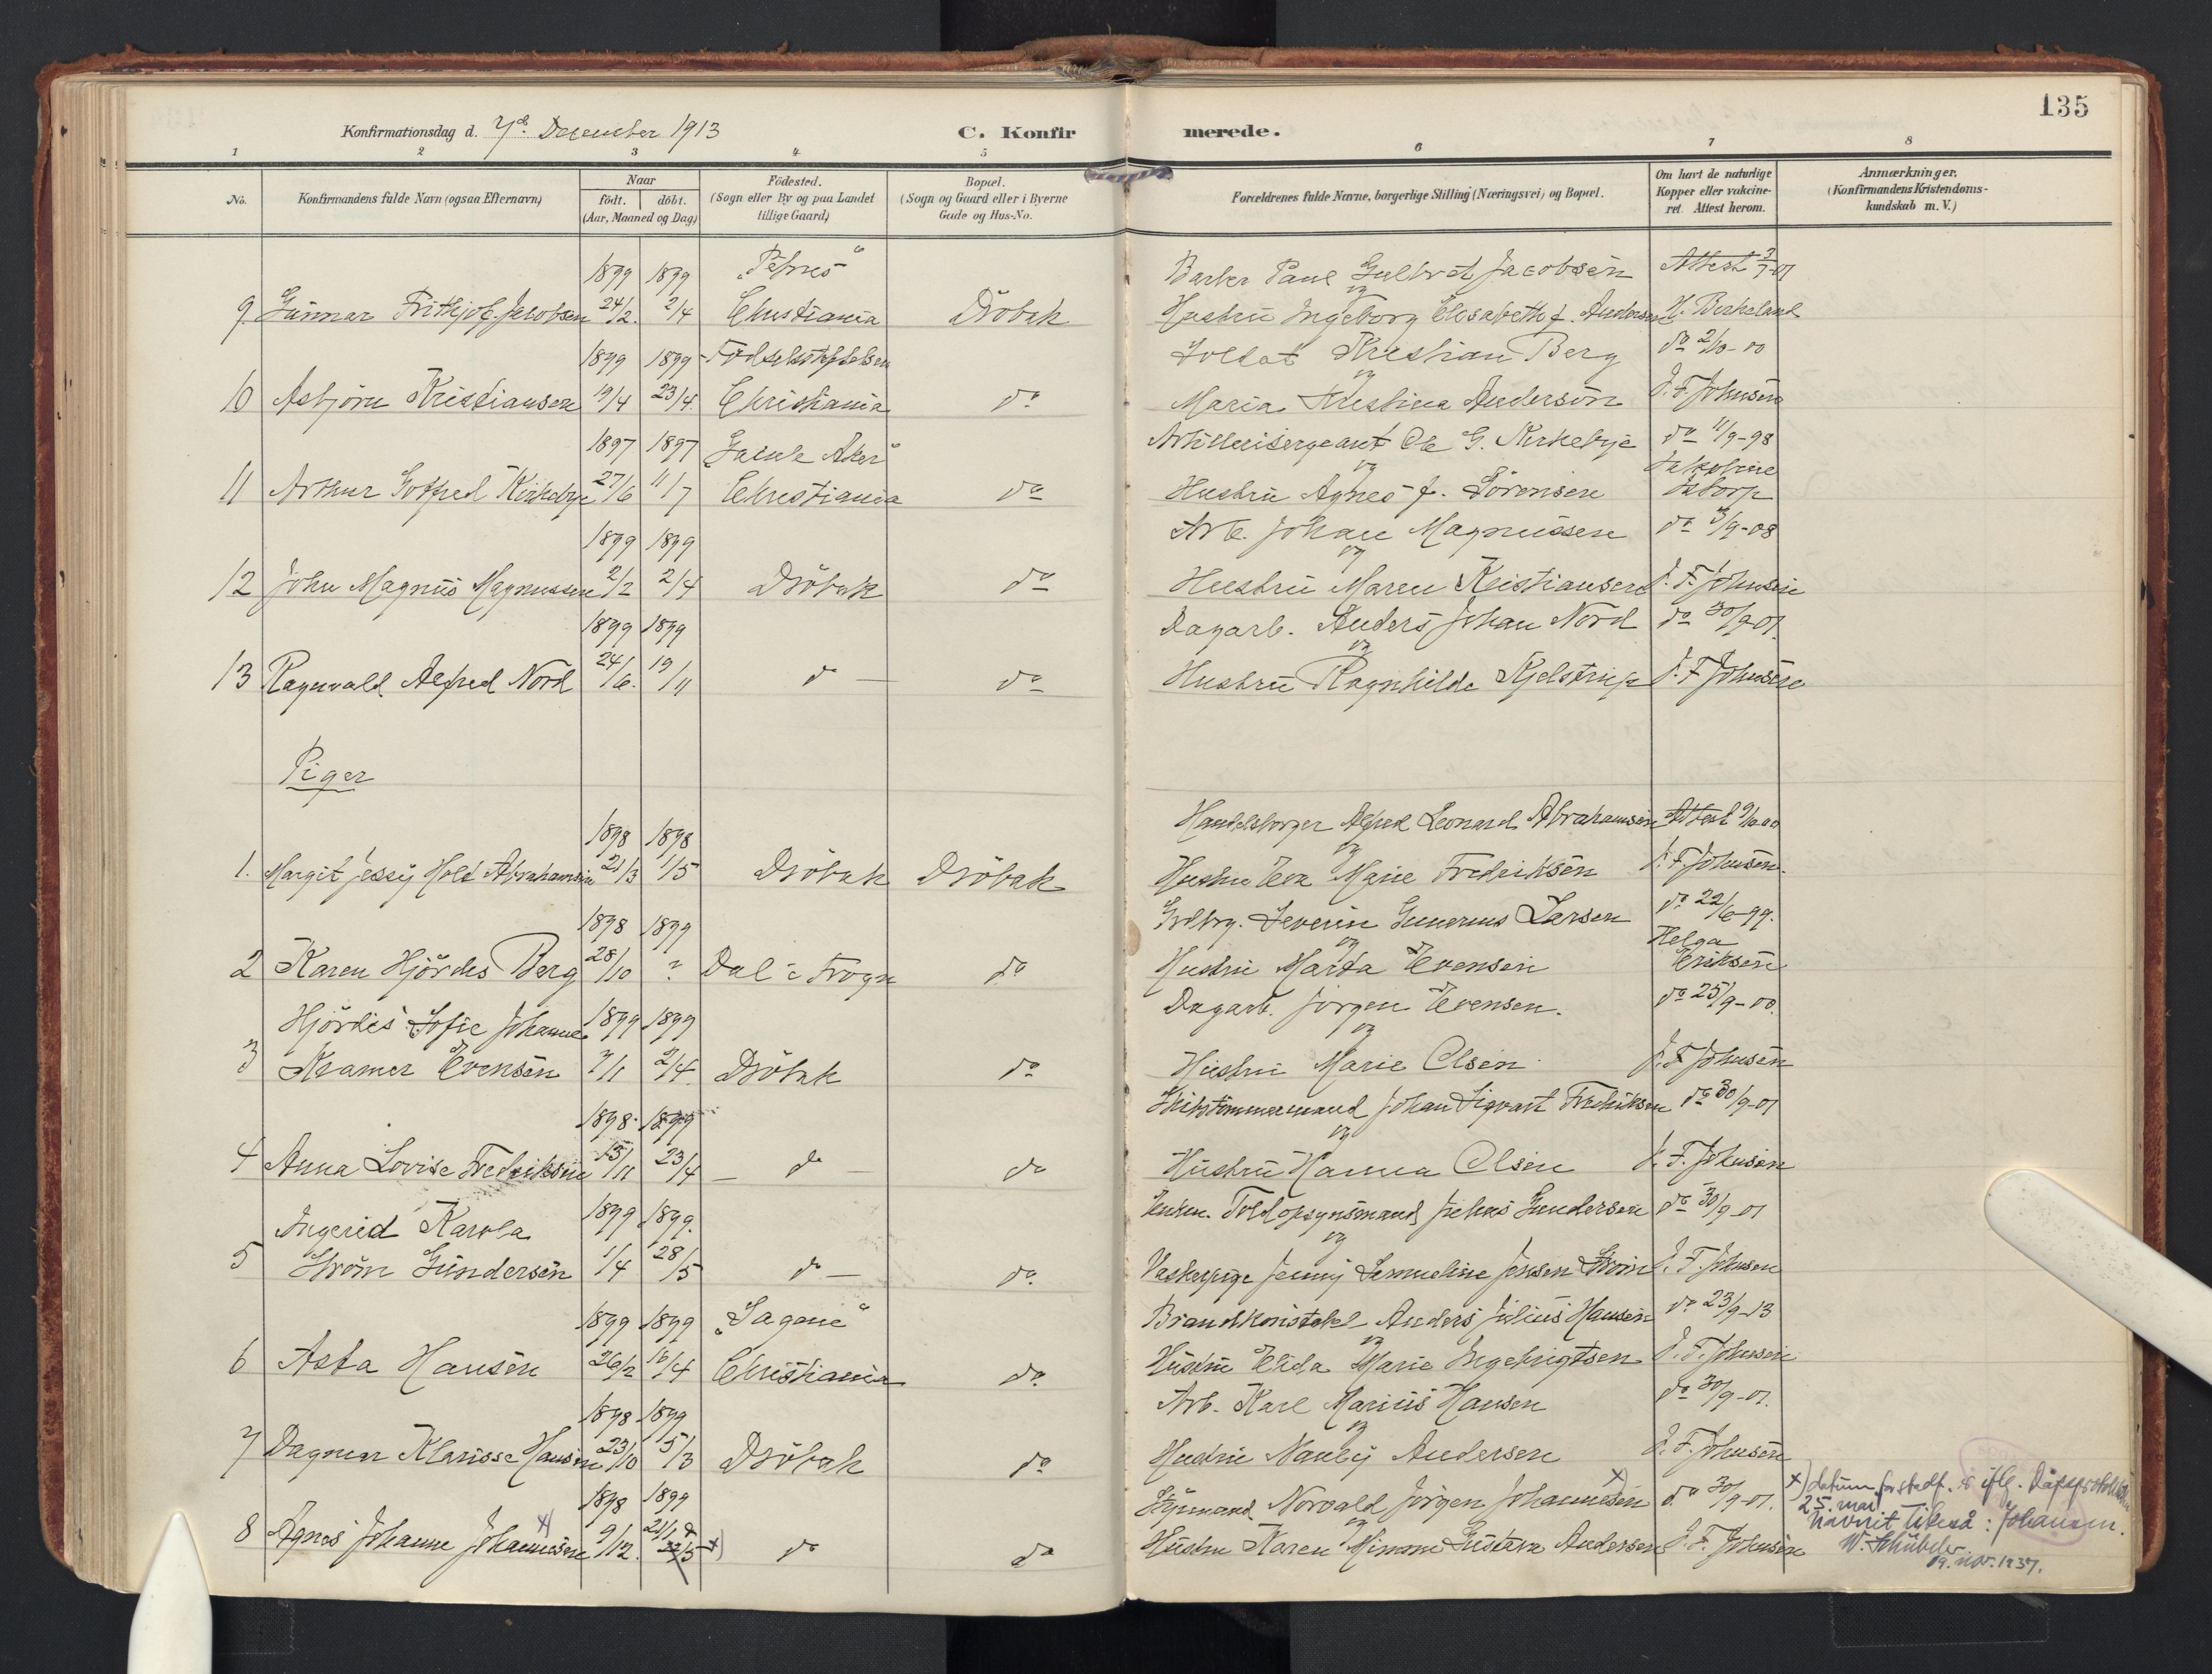 135
Konfirmationsdag d. 7de December 1913
C. Konfirmerede.
1 2 3 4 5 6 7 8
No.
Konfirmandens fulde Navn (ogsaa Efternavn)
Naar
födt. döbt.
(Aar, Maaned og Dag)
Födested.
(Sogn eller By og paa Landet
tillige Gaard)
Bopæl.
(Sogn og Gaard eller i Byerne
Gade og Hus-No.
Forældrenes fulde Navne, borgerlige Stilling (Næringsvei) og Bopæl.
Om havt de naturlige
Kopper eller vakcine-
ret. Attest herom.
Anmærkninger.
(Konfirmandens Kristendoms-
kundskab m. V.)
1899 1899 "Petrus" Barber Paul Gulbrd Jacobsen Attest 3/7-01
og
9. Gunnar Frithjof Jacobsen 24/2. 2/4 Christiania Dröbak Hustru Ingeborg Elisabeth f. Andersen H. Birkeland
1899 1899 Fødselsstiftelsen Soldat Kristian Berg do 2/10-00
og
10 Asbjörn Kristiansen 19/4 23/4. Christiania do Maria Kristina Anderson J. F. Johnsen
1897 1897 Gamle Aker" Artillerisergeant Ole G. Kirkebye do 11/9-98
og Jakobine
11 Arthur Gotfred Kirkebye 27/6 11/7 Christiania do Hustru Agnes f. Sörensen
1899 1899 Arb. Johan Magnussen do 3/9-08
og
12 John Magnus Magnussen 2/2 2/4 Dröbak do Hustru Maren Kristiansen J. F. Johnsen
1899 1899 Dagarb. Anders Johan Nord do 30/9-01.
og
13 Ragnvald Alfred Nord 24/6. 19/11 do — do Hustru Ragnhilde Kjelstrup J. F Johnsen
Piger
1898 1898 Handelsborger Alfred Leonard Abrahamsen Attest
og
1. Margit Jessy Hold Abrahamsen 21/3 1/5 Dröbak Dröbak Hustru Eva Marie Fredriksen J. F. Johnsen.
1898 1899 Grdbrg. Severin Gunerius Larsen do 22/6-99.
og Helga
2 Karen Hjördis Berg 28/10 ? Dal i Frogn do Hustru Marta Evensen Eriksen
Hjördis Sofie Johanne 1899 1899 Dagarb. Jörgen Evensen. do 25/9-00.
og
3 Kramer Evensen 7/1 2/4. Dröbak do Hustru Marie Olsen J. F Johnsen
1898. 1899 Skibstömmermand Johan Sigvart Fredriksen do 30/9-01
og
4 Anna Lovise Fredriksen 15/11 23/4 — do — do Hustru Hanna Olsen J. F. Johnsen
Ingerid Karola 1899 1899. Enkem. Toldopsynsmand Julius Gundersen do 30/9-01
og
5 Ström Gundersen 1/4 28/5 do — do. Vaskepige Jenny Semueline Jenssen Ström J. F. Johnsen
1899 1899 "Sagene" Brandkonstabel Anders Julius Hansen do 23/9-13
og
6 Asta Hansen 26/2 16/4 Christiania do. Hustru Elida Marie Ingebrigtsen J. F. Johnsen
1898 1899 Arb. Karl Marius Hansen do 30/9-01.
og
7 Dagmar Klarisse Hansen 23/10 5/3 Dröbak do Hustru Nanly Andersen J. F. Johnsen
1898 1899 Styrmand Norvald Jörgen Johannesen x) do 30/9-01.
og
8 Agnes Johanne Johannesen x) 9/12. x) do do Hustru Karen Minom Gustava Andersen J. F. Johnsen
x) datum for stadf. iflg. Dåpsprotokollen
25. mai
Navnet likeså: Johansen.
W. Schübeler
19. nov. 1937.